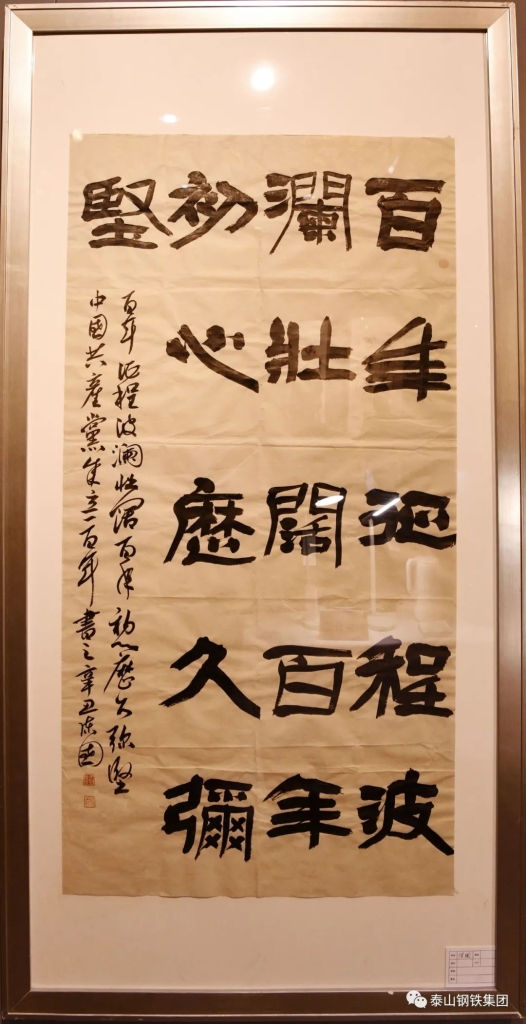 百年征程波
瀾壯闊百年
初心歷久彌
堅
百年征程波澜壮阔百年初心歷久弥堅
中國共產黨成立一百年書之辛丑
泰山钢铁集团